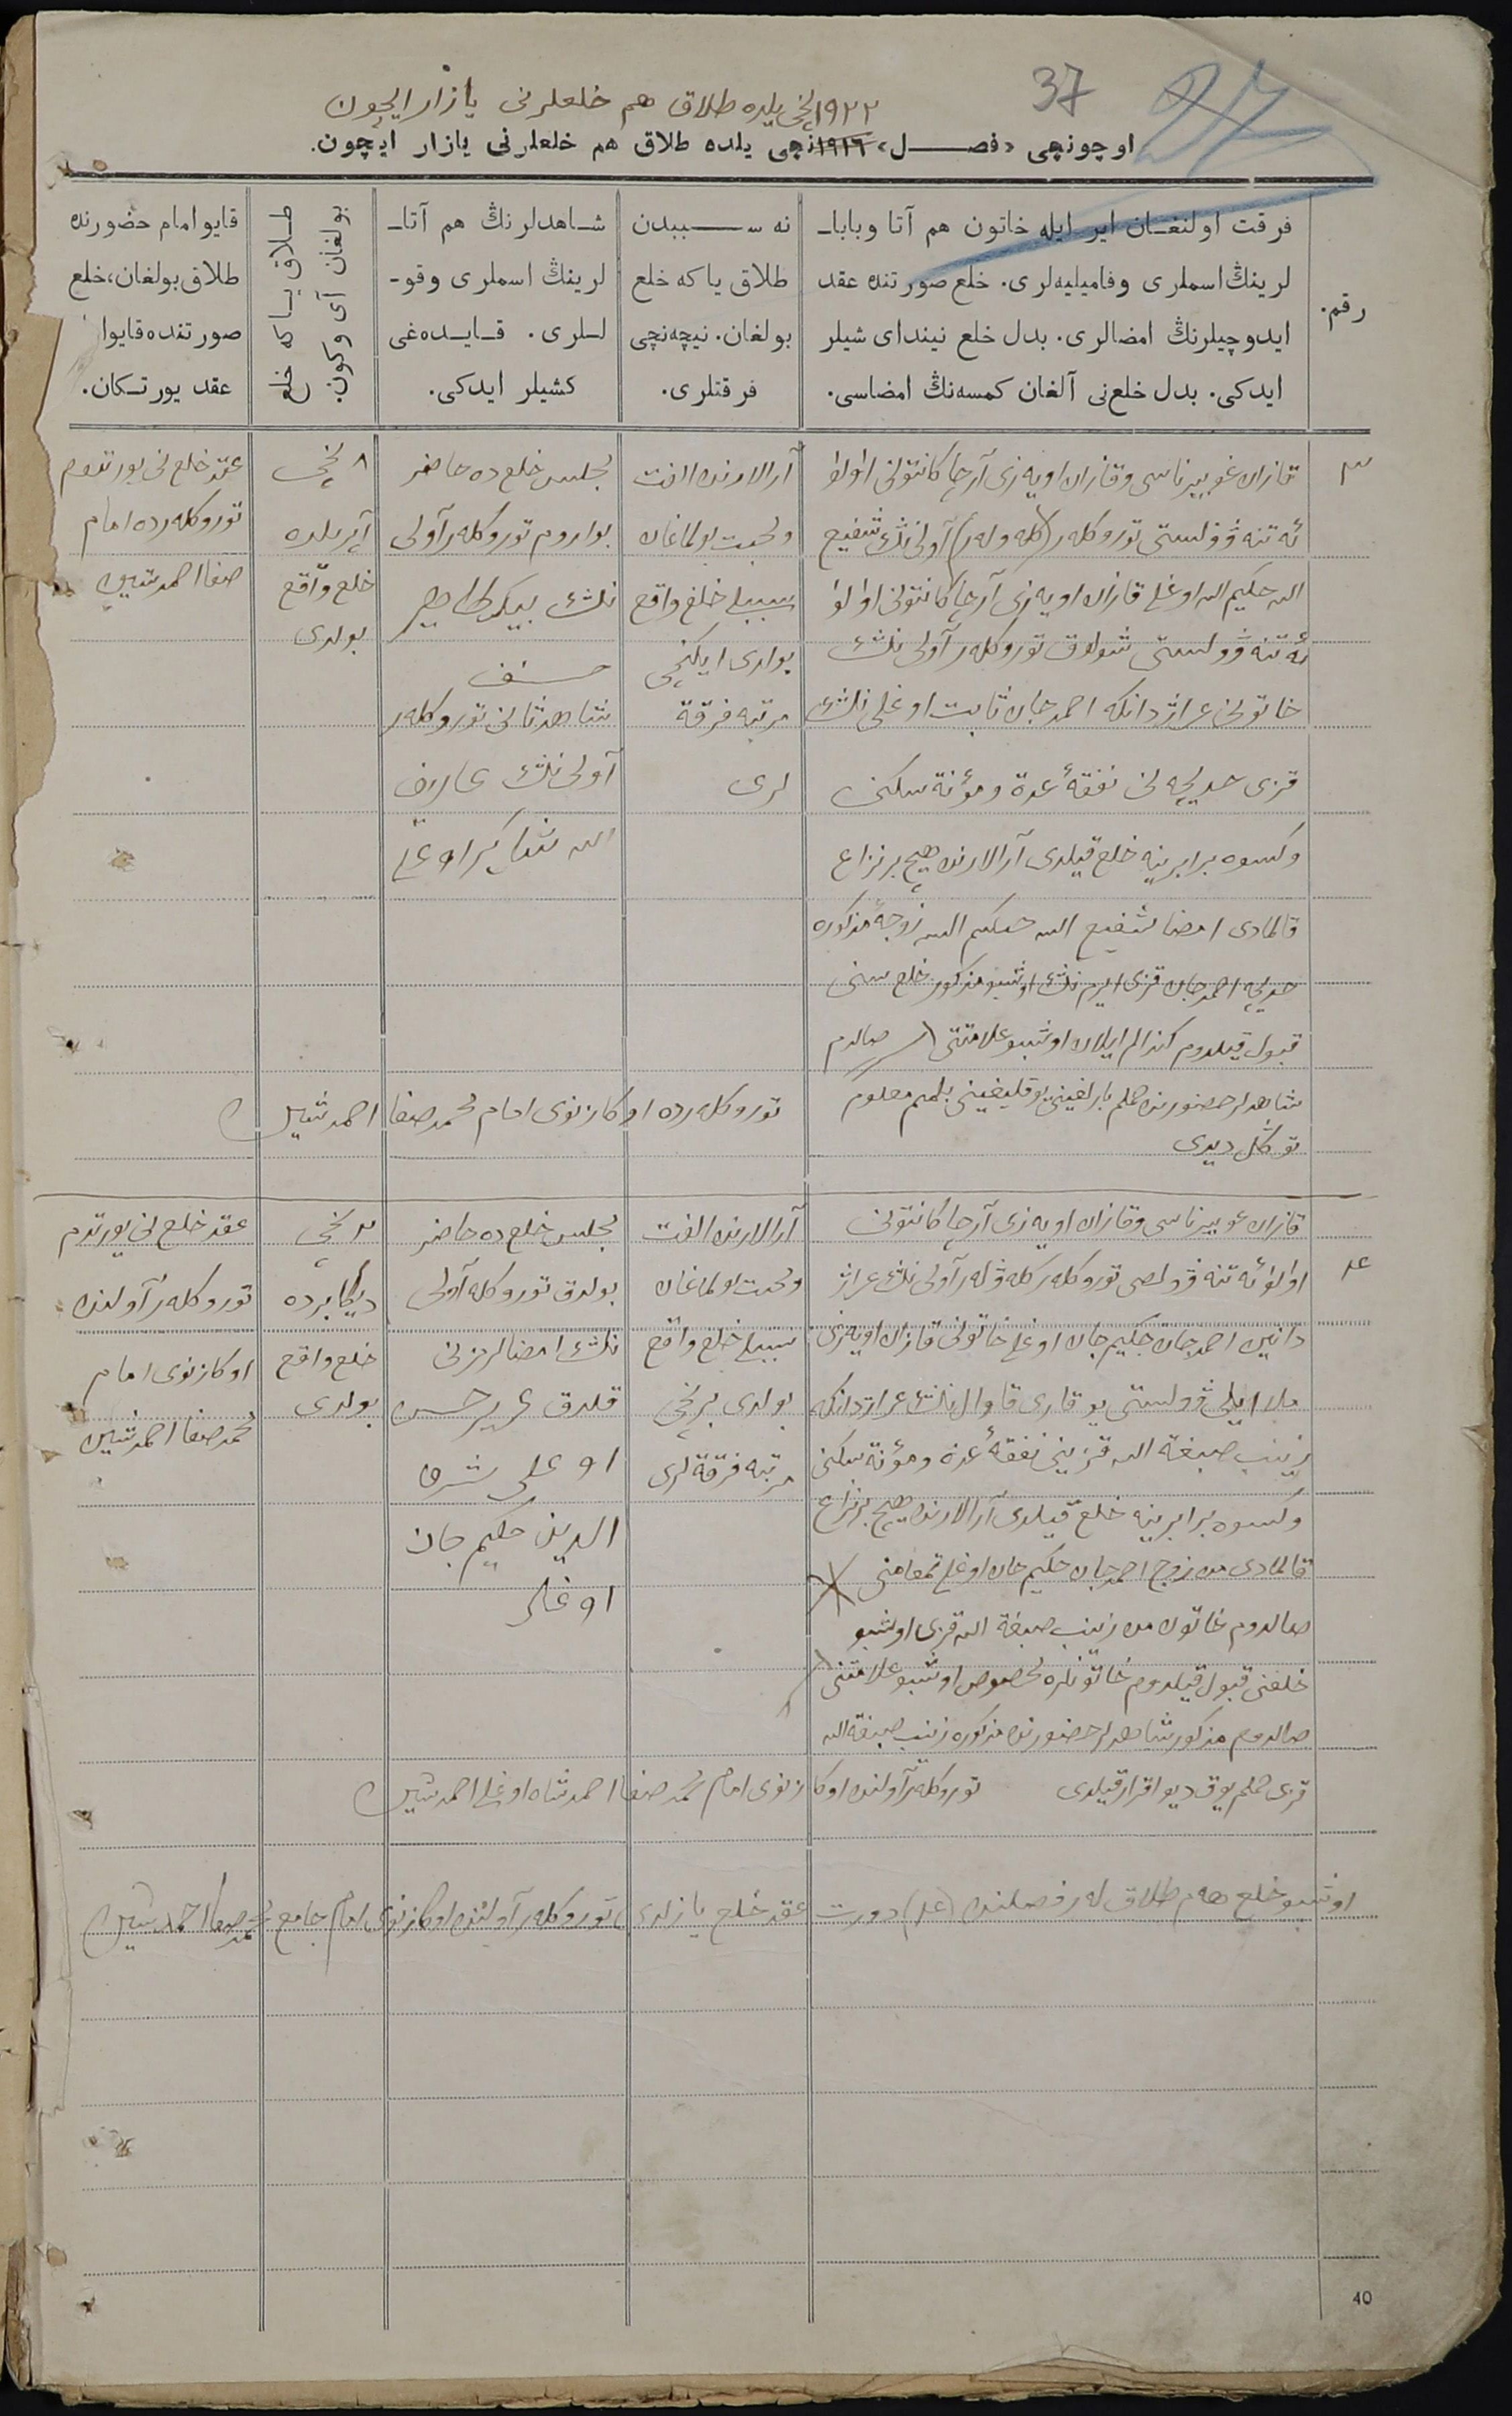 37
27
١٩٢٢نچی یلده طلاق هم خلعلرنی یازار ایچون
اوچونچی «فصل» ١٩١٦نچی یلده طلاق هم خلعلرنی یازار ایچون.
رقم.
فرقت اولنغان ایر ایله خاتون هم آتا وبابا-
لرینڭ اسملری وفامیلیه‌لری. خلع صورتنده عقد
ایدوچیلرنڭ امضالری. بدل خلع نیندای شیلر
ایدکی. بدل خلع‌نی آلغان کمسه‌نڭ امضاسی.
نه سببدن
طلاق یاکه خلع
بولغان. نیچه‌نچی
فرقتلری.
شاهدلرنڭ هم آتا-
لرینڭ اسملری وقو-
لسلری. قایده‌غی
کشیلر ایدکی.
طلاق یاکه خلع
بولغان آی وکون
قایو امام حضورنده
طلاق بولغان، خلع
صورتنده قایو امام
عقد یورتکان.
٣
قازان غوبیرناسی وقازان اویه‌زی آرچا کانتونی اولوا
ئه‌تنه ڤولستی توروکله‌ر (کله‌وله‌ر) آولی‌نڭ شفیع
الله حکیم الله اوغلی قازان اویه‌زی آرچا کانتونی اولوا
ئه‌تنه ڤولستی شولوق توروکله‌ر آولی‌نڭ
خاتونی عراژدانکه احمدجان ثابت اوغلی‌نڭ
قزی خدیجه‌نی نفقۀ عدة ومؤنة سکنی
وکسوه برابرینه خلع قیلدی آرالارنده هیچ بر نزاع
قالمادی امضا شفیع الله حکیم الله زوجۀ مذکوره
خدیجه احمدجان قزی ایرم‌نڭ اوشبو مذکور خلع‌سنی
قبول قیلدوم کندالم ایلان اوشبو علامتنی صالدم
شاهدلر حضورنده علم بارلغینی یوقلیغینی بلمم معلوم
توگل دیدی
آرالارنده الفت
ومحبت بولماغان
سببلی خلع واقع
بولدی ایکنچی
مرتبه فرقة
لری
مجلس خلع‌ده حاضر
بولدوم توروکله‌ر آولی
نڭ بیکطاهر
حسنف
شاهد ثانی توروکله‌ر
آولی‌نڭ عارف
الله شاکر اوغلی
٨ نچی
آپریلده
خلع واقع
بولدی
عقد خلع‌نی یورتدوم
توروکله‌رده امام
صفا احمدشین
توروکله‌رده اوکازنوی امام محمد صفا احمدشین
٤
قازان غوبیرناسی وقازان اویه‌زی آرچا کانتونی
اولوا ئه‌تنه ڤولصی توروکله‌ر کله‌ڤله‌ر آولی‌نڭ عراژ
دانین احمدجان حکیم‌جان اوغلی خاتونی قازان اویه‌زی
ملا ایلی ڤولستی یوقاری قاوال‌نڭ عراژدانکه
زینب صبغة الله قزینی نفقۀ عدة ومؤنة سکنی
وکسوه برابرینه خلع قیلدی آرالارنده هیچ بر نزاع
قالمادی من زوج احمدجان حکیم‌جان اوغلی تمغامنی
صالدوم خاتون من زینب صبغة الله قزی اوشبو
خلعنی قبول قیلدوم خاتونلره مخصوص اوشبو علامتنی
صالدوم مذکور شاهدلر حضورنده مذکوره زینب صبغة الله
قزی علم یوق دیو اقرار قیلدی
آرالارنده الفت
ومحبت اولماغان
سببلی خلع واقع
بولدی برنچی
مرتبه فرقة‌لری
مجلس خلع‌ده حاضر
بولدق توروکله آولی
نڭ امضالرمزنی
قلدق حسن
اوغلی شرف
الدین حکیم جان
اوغلی
٢ نچی
دیکابرده
خلع واقع
بولدی
عقد خلع‌نی یورتدم
توروکله‌ر آولنده
اوکازنوی امام
محمد صفا احمدشین
توروکله‌ر آولنده اوکازنوی امام محمد صفا احمدشاه اوغلی احمدشین
اوشبو خلع هه‌م طلاق له‌ر فصلنده (٤) دورت عقد خلع یازلدی توروکله‌ر آولنده اوکازنوی امام جامع محمد صفا احمدشین
40